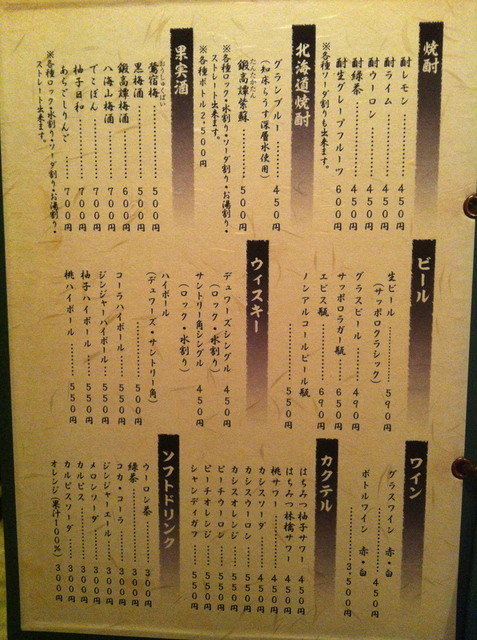 焼酎
酎レモン 450円
酎ライム 450円
酎ウーロン 450円
酎緑茶 450円
酎生グレープフルーツ 600円
※各種ソーダ割りも出来ます。
北海道焼酎
グランブルー 450円
(知床らうす深層水使用)
鍛高譚紫蘇 500円
たんたかたん
※各種ロック・水割り・ソーダ割り・お湯割り・
ストレート出来ます。
※各種ボトル2,500円
果実酒
鶯宿梅 500円
おうしゅくばい
黒梅酒 500円
鍛高譚梅酒 600円
八海山梅酒 700円
でこぽん 700円
柚子日和 700円
あらごしりんご 700円
※各種ロック・水割り・ソーダ割り・お湯割り・
ストレート出来ます。
ビール
生ビール 590円
(サッポロクラシック)
グラスビール 490円
サッポロラガー瓶 650円
エビス瓶 690円
ノンアルコールビール瓶
550円
ウィスキー
デュワーズシングル 450円
(ロック・水割り)
サントリー角シングル 450円
(ロック・水割り)
ハイボール
(デュワーズ・サントリー角)
500円
コーラハイボール 550円
ジンジャーハイボール 550円
柚子ハイボール 550円
桃ハイボール 550円
ワイン
グラスワイン 赤・白
450円
ボトルワイン 赤・白
3,500円
カクテル
はちみつ柚子サワー 450円
はちみつ林檎サワー 450円
桃サワー 450円
カシスソーダ 450円
カシスウーロン 550円
カシスオレンジ 550円
ピーチウーロン 550円
ピーチオレンジ 550円
シャンディガフ 550円
ソフトドリンク
ウーロン茶 300円
緑茶 300円
コカ・コーラ 300円
ジンジャーエール 300円
メロンソーダ 300円
カルピス 300円
カルピスソーダ 300円
オレンジ(果汁100%) 300円